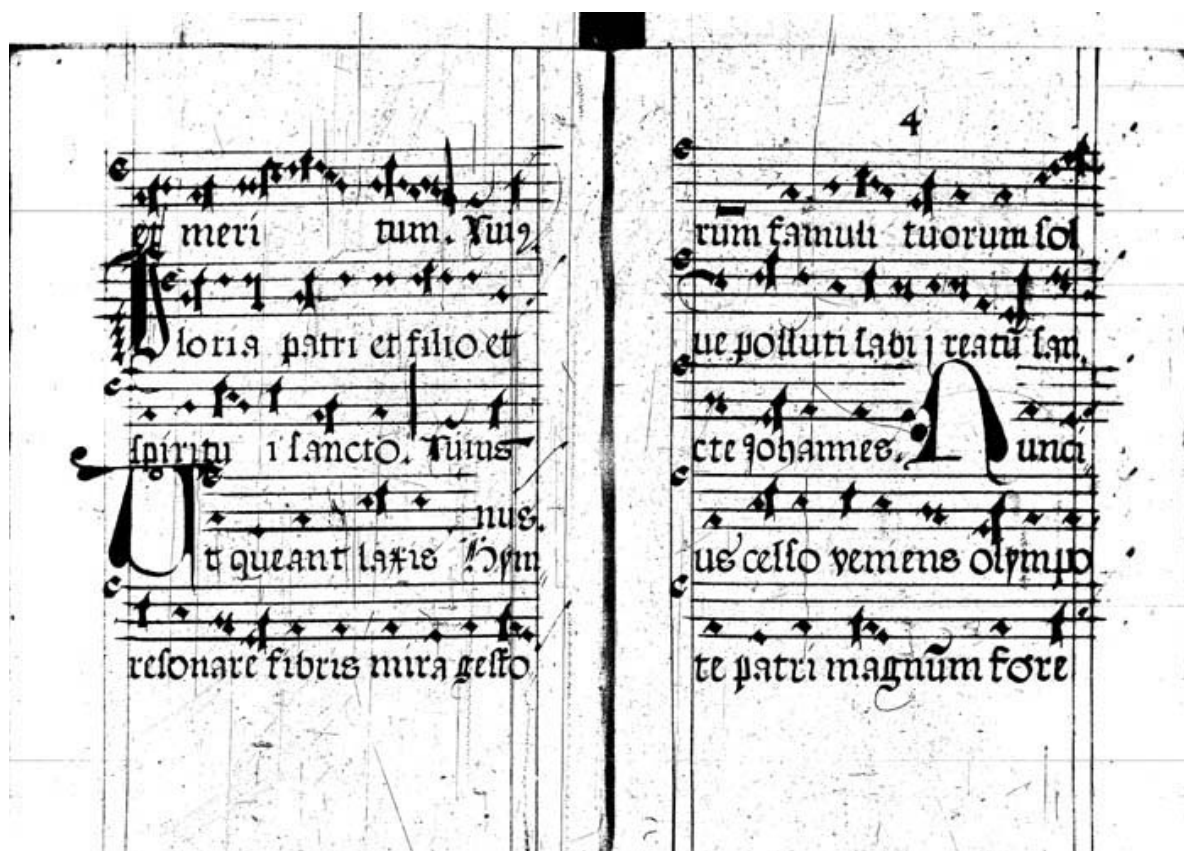 et meri tum. Cuiꝯ.
Gloria patri et filio et
spiritu i sancto. Cuius
nus.
Ut queant laxis Hym
resonare fibris mira gesto
4
rūm famuli tuorum sol
ue polluti labi j reatū san.
cte Johannes. Nunci
us celso veniens olympo
te patri magnūm fore